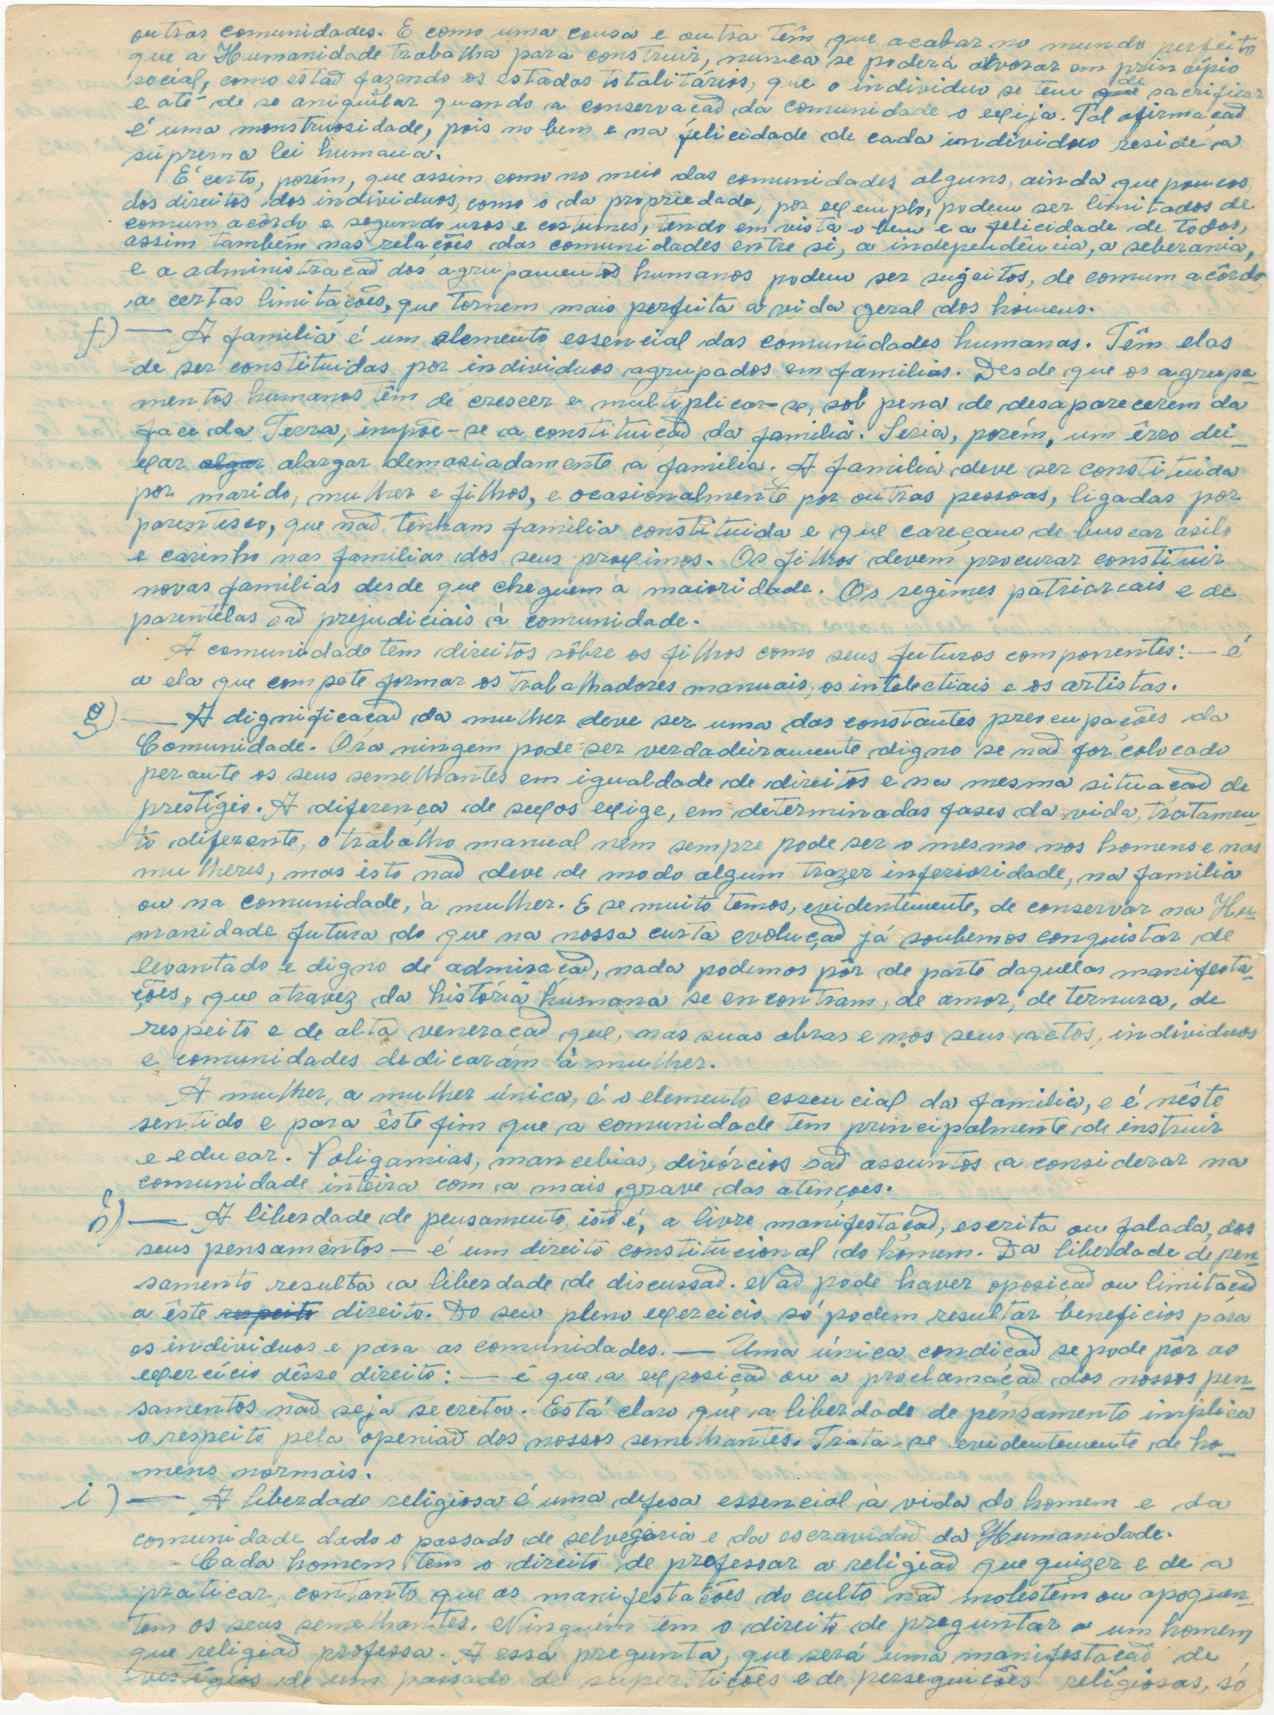 outras comunidades. E como uma cousa e outra têm que acabar no mundo perfeito
que a Humanidade trabalha para construir, nunca se poderá alvorar em princípio
social, como estão fazendo os estados totalitários, que o individuo se tem de sacrificar
e até de se aniquilar quando a conservação da comunidade o exija. Tal afirmação
é uma monstruosidade, pois no bem e na felicidade de cada individuo reside a
suprema lei humana.
E' certo, porém, que assim como no meio das comunidades alguns, ainda que poucos
dos direitos dos individuos, como o da propriedade, por exemplo, podem ser limitados de
comum acôrdo e segundo usos e costumes, tendo em vista o bem e a felicidade de todos,
assim tambêm nas relações das comunidades entre si, a independência, a soberania,
e a administração dos agrupamentos humanos podem ser sugeitos, de comum acôrdo
a certas limitações, que tornem mais perfeita a vida geral dos homens.
f) — A familia é um elemento essencial das comunidades humanas. Têm elas
de ser constituidas por individuos agrupados em familias. Desde que os agrupa-
mentos humanos têm de crescer e multiplicar-se, sob pena de desaparecerem da
face da Terra, impõe-se a constituição da familia. Seria, porém, um êrro dei-
xar algar alargar demasiadamente a familia. A familia deve ser constituida
por marido, mulher e filhos, e ocasionalmente por outras pessoas, ligadas por
parentesco, que não tenham familia constituida e que careçam de buscar asilo
e carinho nas familias dos seus proximos. Os filhos devem procurar constituir
novas familias desde que cheguem à maioridade. Os regimes patriarcais e de
parentelas são prejudiciais à comunidade.
A comunidade tem direitos sôbre os filhos como seus futuros componentes: — é
a ela que compete formar os trabalhadores manuais, os intelectiais e os artistas.
g) — A dignificação da mulher deve ser uma das constantes preocupações da
Comunidade. Ora ningem pode ser verdadeiramente digno se não for colocado
perante os seus semelhantes em igualdade de direitos e na mesma situação de
prestigio. A diferença de sexos exige, em determinadas fases da vida, tratamen-
to diferente, o trabalho manual nem sempre pode ser o mesmo nos homens e nas
mulheres, mas isto não deve de modo algum trazer inferioridade, na familia
ou na comunidade, à mulher. E se muito temos, evidentemente, de conservar na Hu-
manidade futura do que na nossa curta evolução já soubemos conquistar de
levantado e digno de admiração, nada podemos pôr de parte daquelas manifesta-
ções, que atravez da história humana se encontram, de amor, de ternura, de
respeito e de alta veneração que, nas suas obras e nos seus actos, individuos
e comunidades dedicarám à mulher.
A mulher, a mulher única, é o elemento essencial da familia, e é nêste
sentido e para êste fim que a comunidade tem principalmente de instruir
e educar. Poligamias, mancebias, divórcios são assuntos a considerar na
comunidade inteira com a mais grave das atenções.
h) — A liberdade de pensamento, isto é, a livre manifestação, escrita ou falada, dos
seus pensamentos — é um direito constitucional do homem. Da liberdade de pen-
samento resulta a liberdade de discussão. Não pode haver oposição ou limitação
a êste respeito direito. Do seu pleno exercicio só podem resultar beneficios para
os individuos e para as comunidades. — Uma única condição se pode pôr ao
exercício dêsse direito: — é que a exposição ou a proclamação dos nossos pen-
samentos não seja secreta. Está claro que a liberdade de pensamento implica
o respeito pela openião dos nossos semelhantes. Trata-se evidentemente de ho-
mens normais.
i) — A liberdade religiosa é uma defesa essencial à vida do homem e da
comunidade, dado o passado de selvegeria e da escravidão da Humanidade.
- Cada homem tem o direito de professar a religião que quizer e de a
praticar, contanto que as manifestações do culto não molestem ou apoquen-
tem os seus semelhantes. Ninguém tem o direito de preguntar a um homem
que religião professa. A essa pregunta, que será uma manifestação de
vestígios de um passado de superstições e de perseguições religiosas, só